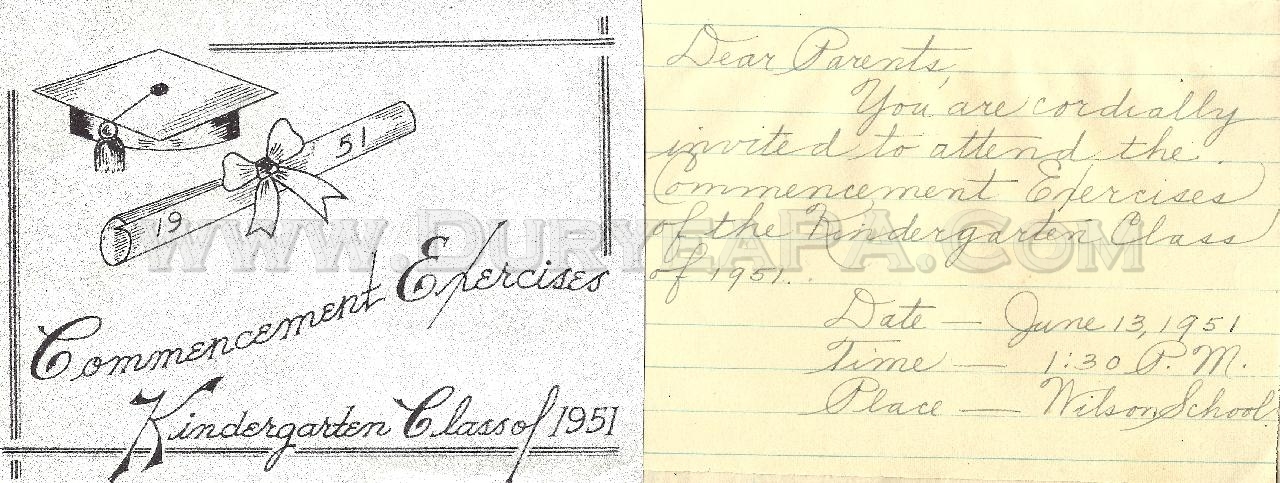 19 51
Commencement Exercises
Kindergarten Class of 1951
Dear Parents,
You are cordially
invited to attend the
Commencement Exercises
of the Kindergarten Class
of 1951.
Date — June 13, 1951
Time — 1:30 P.M.
Place — Wilson School
www.DuryeaPA.com